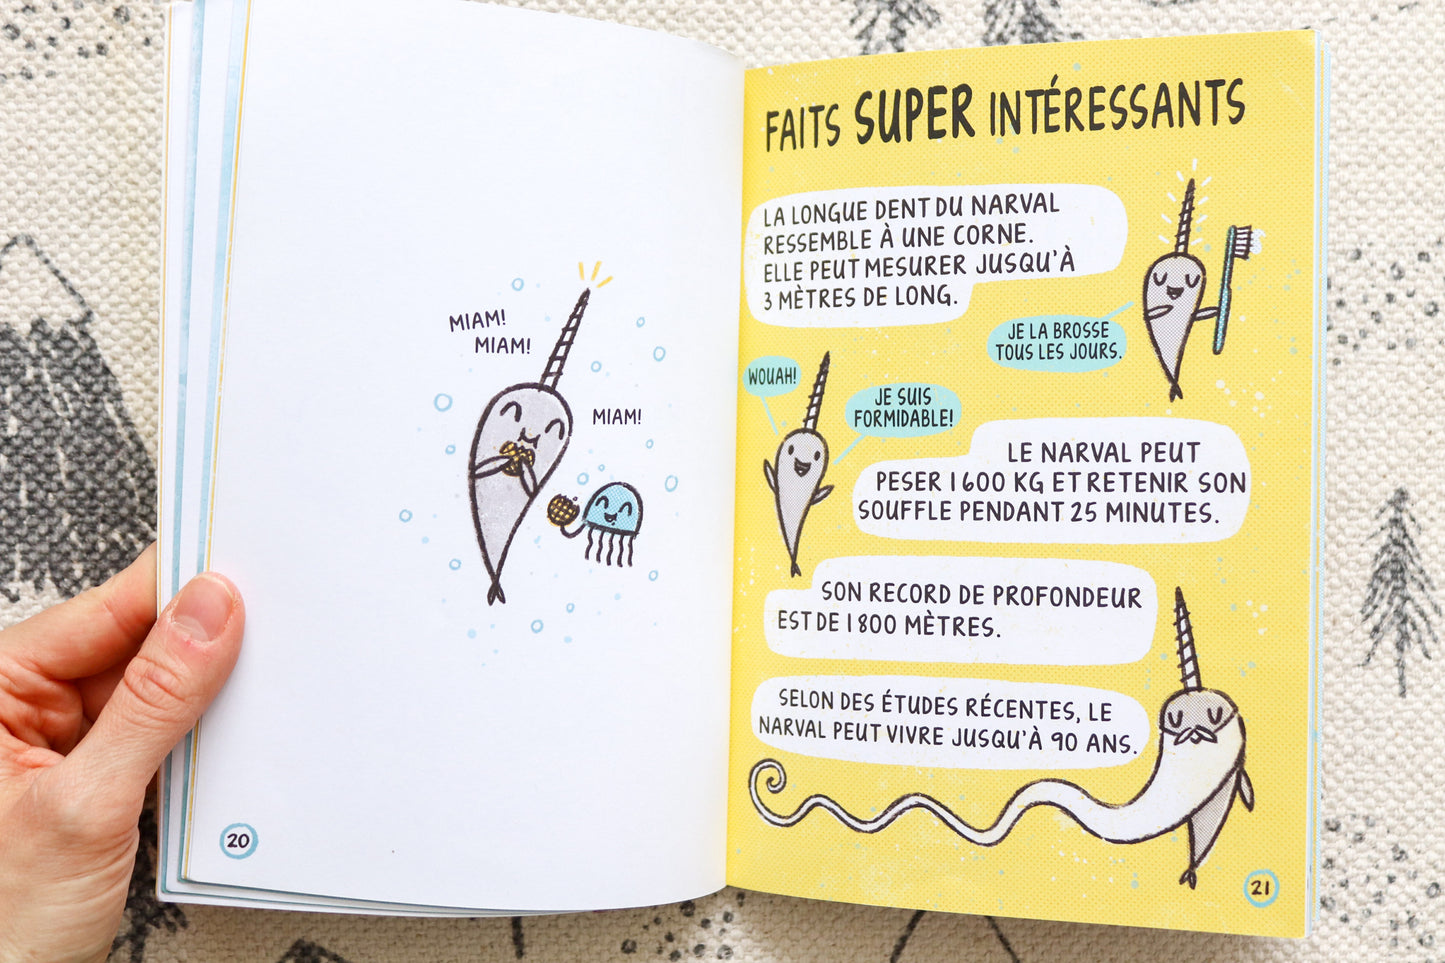 MIAM!
MIAM!
MIAM!
20
FAITS SUPER INTÉRESSANTS
LA LONGUE DENT DU NARVAL
RESSEMBLE À UNE CORNE.
ELLE PEUT MESURER JUSQU'À
3 MÈTRES DE LONG.
JE LA BROSSE
TOUS LES JOURS.
WOUAH!
JE SUIS
FORMIDABLE!
LE NARVAL PEUT
PESER 1 600 KG ET RETENIR SON
SOUFFLE PENDANT 25 MINUTES.
SON RECORD DE PROFONDEUR
EST DE 1 800 MÈTRES.
SELON DES ÉTUDES RÉCENTES, LE
NARVAL PEUT VIVRE JUSQU'À 90 ANS.
21